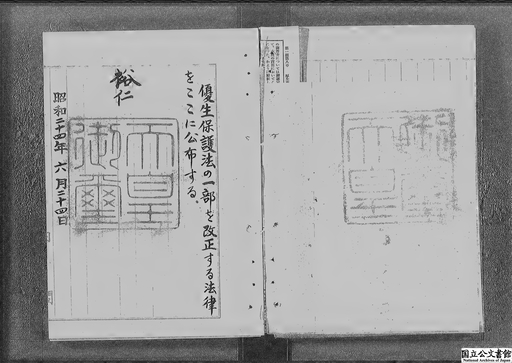 優生保護法の一部を改正する法律
をここに公布する。
裕仁
天皇
御璽
昭和二十四年六月二十四日
国立公文書館
National Archives of Japan